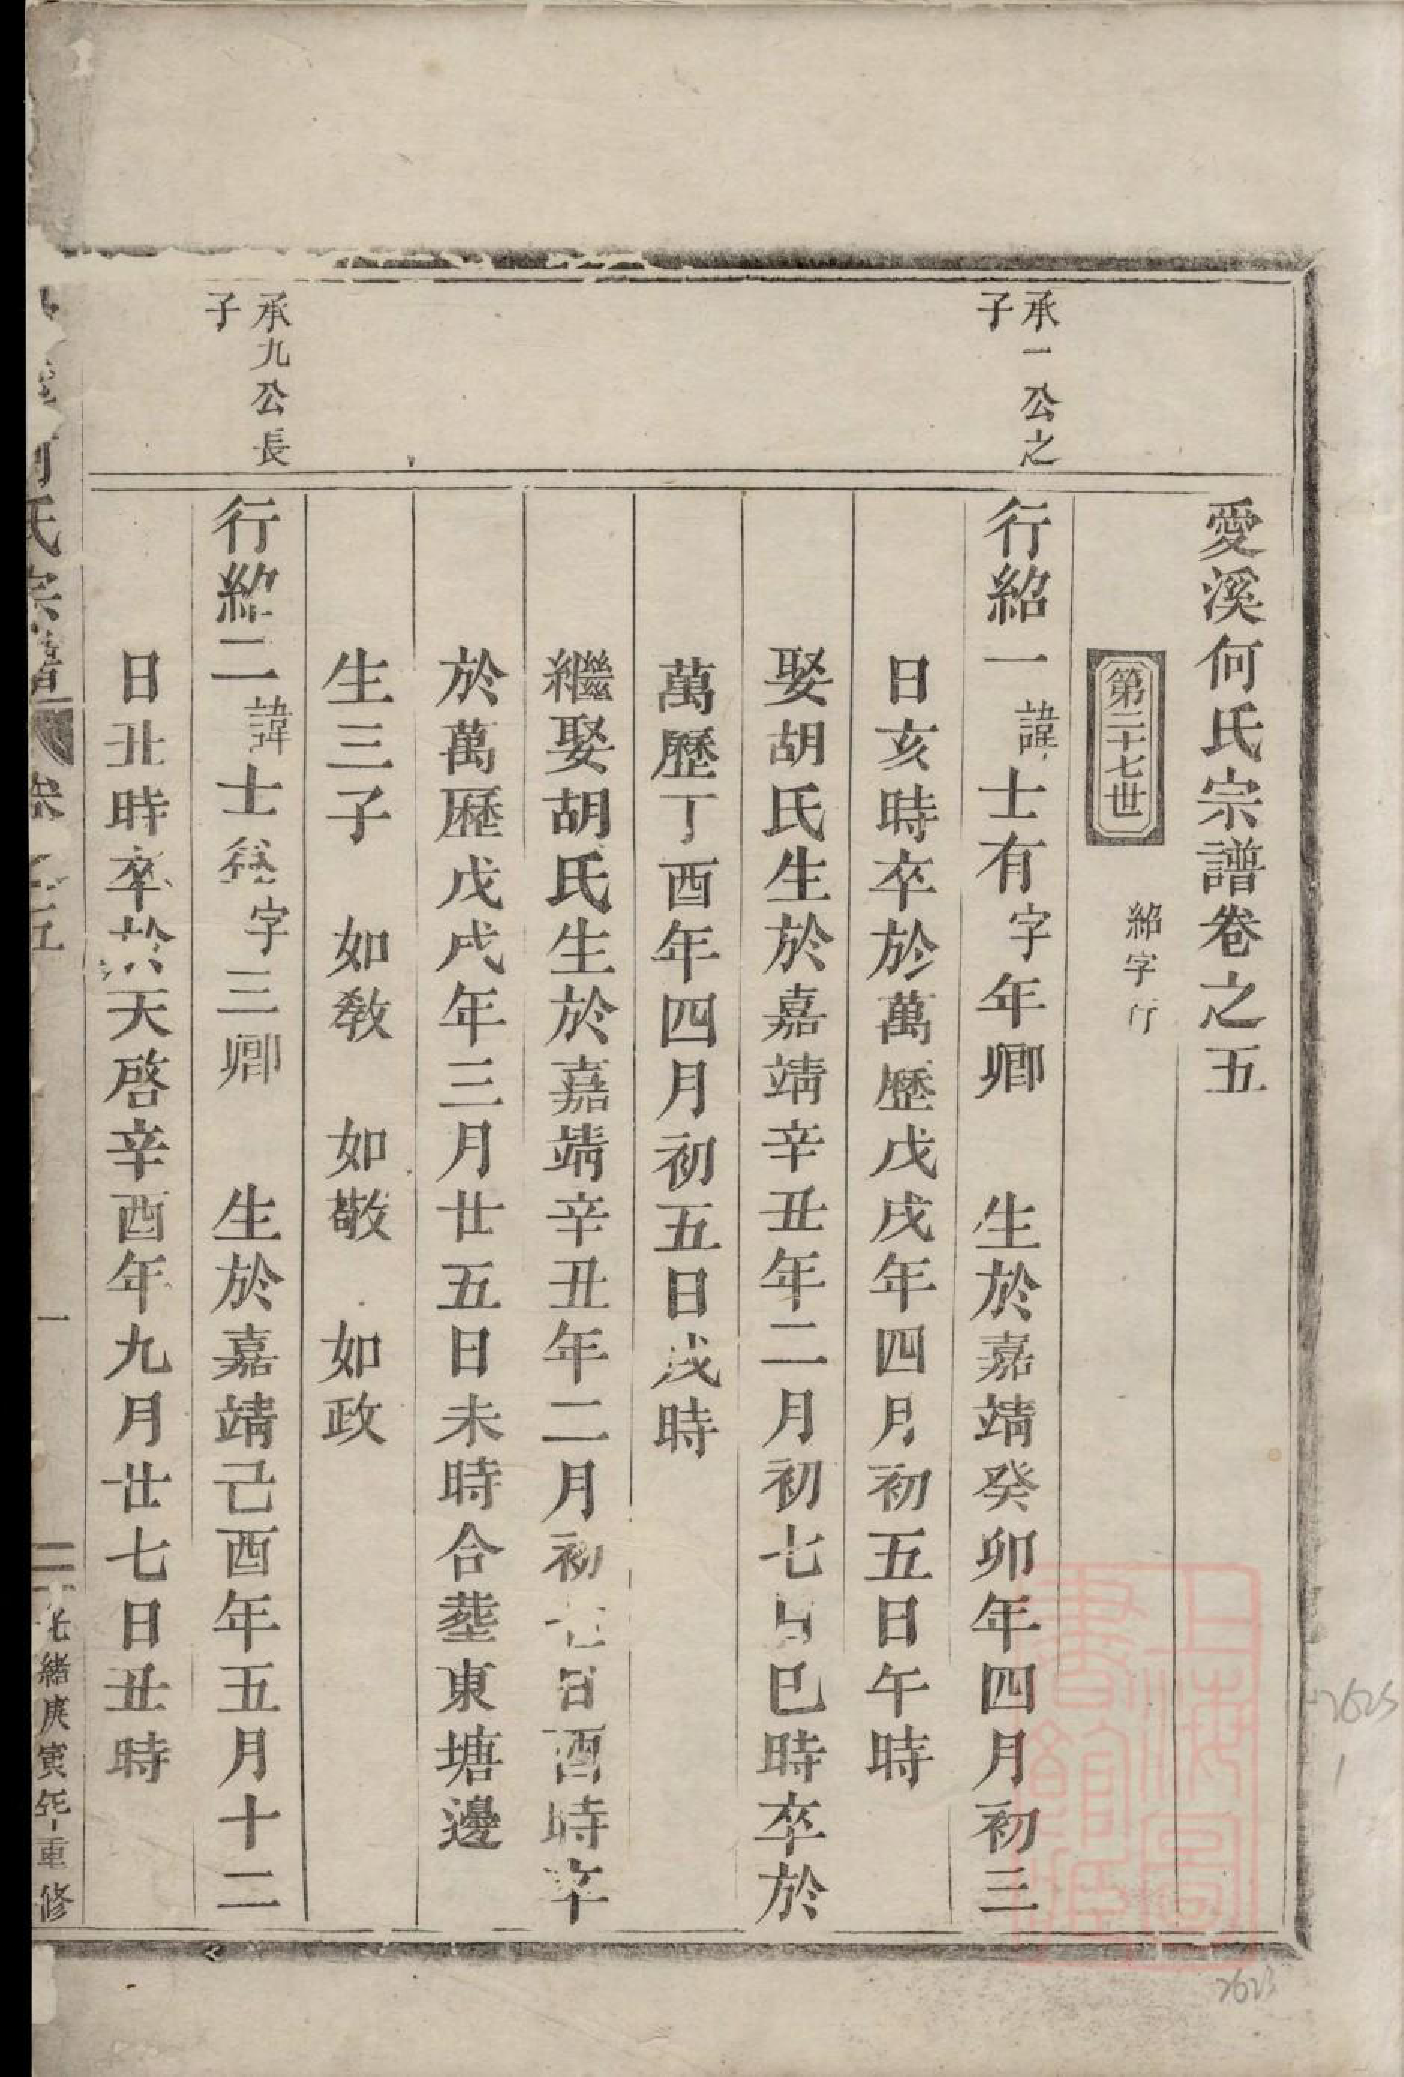 愛溪何氏宗譜卷之五
第二十七世 紹字行
承一公之
子
行紹一諱士有字年卿 生於嘉靖癸卯年四月初三
日亥時卒於萬歷戊戌年四月初五日午時
娶胡氏生於嘉靖辛丑年二月初七日巳時卒於
萬歷丁酉年四月初五日戌時
繼娶胡氏生於嘉靖辛丑年二月初七日酉時卒
於萬歷戊戌年三月廿五日未時合塟東塘邊
生三子 如教 如敬 如政
承九公長
子
行紹二諱士 字三卿 生於嘉靖己酉年五月十二
日丑時卒於天啓辛酉年九月廿七日丑時
何氏宗譜 卷之五 一 光緒庚寅年重修
上海圖書館藏
2623